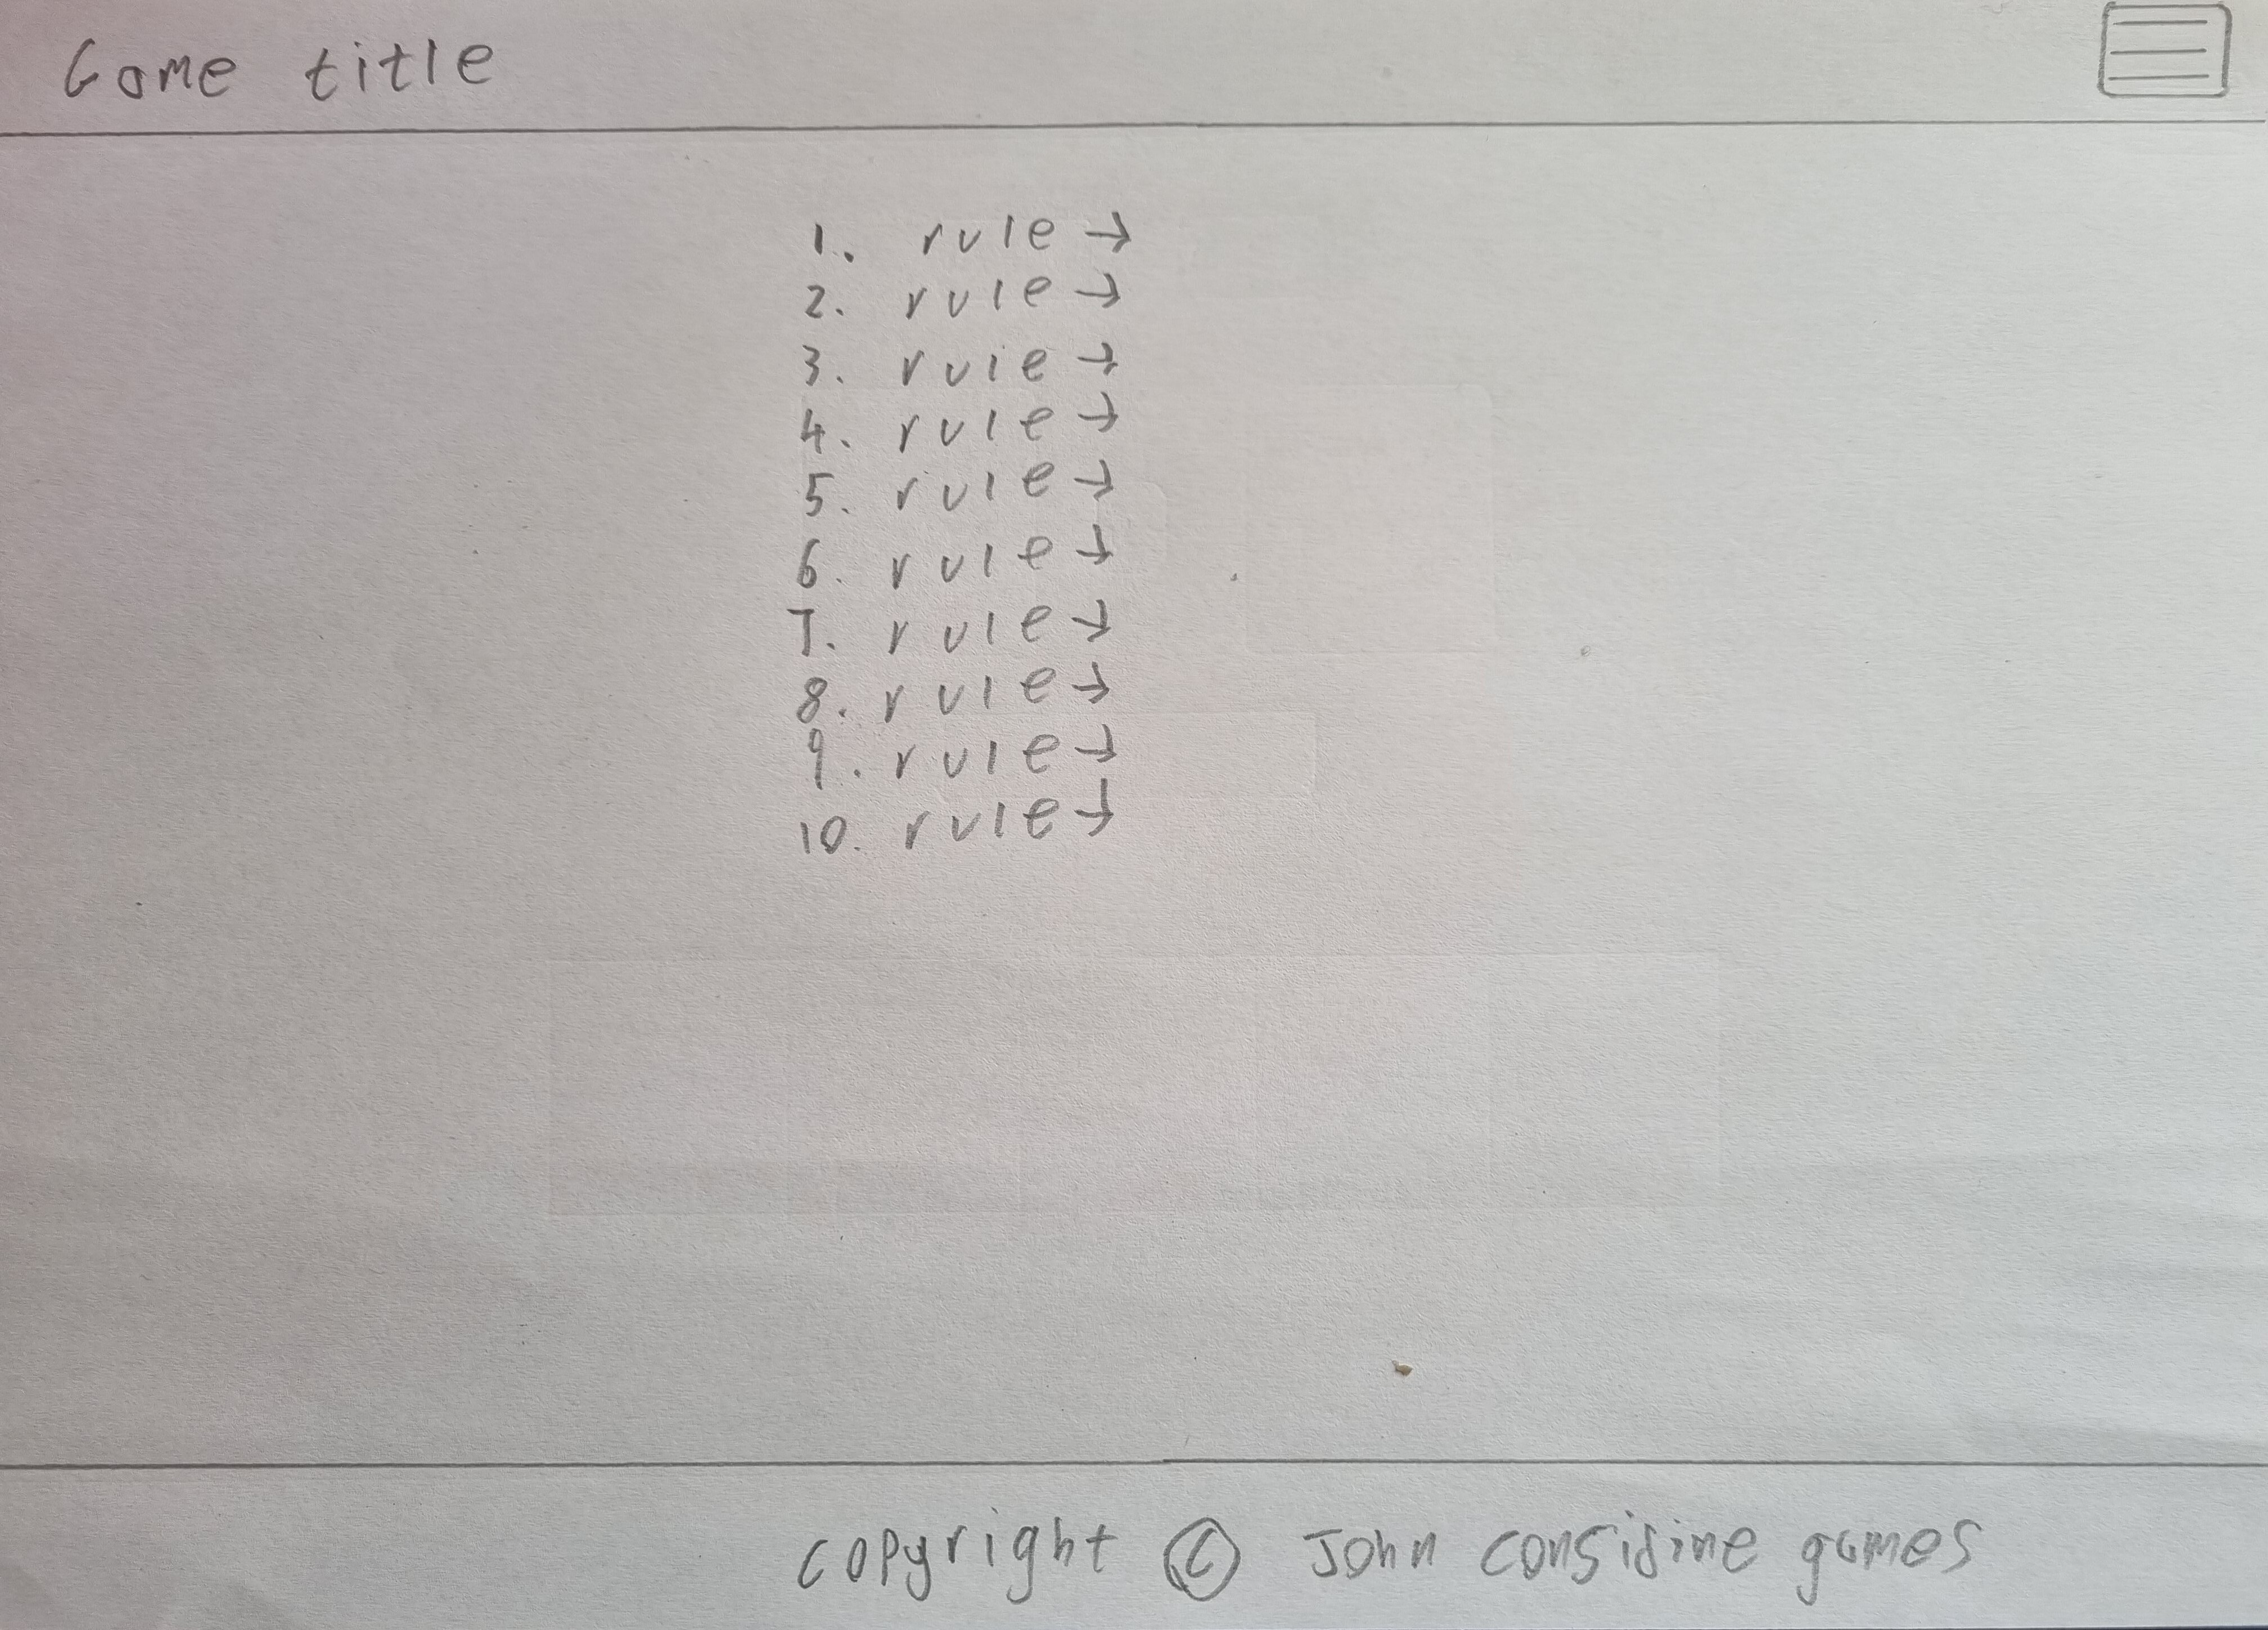 Game title
1. rule →
2. rule →
3. rule →
4. rule →
5. rule →
6. rule →
7. rule →
8. rule →
9. rule →
10. rule →
copyright © John considine games